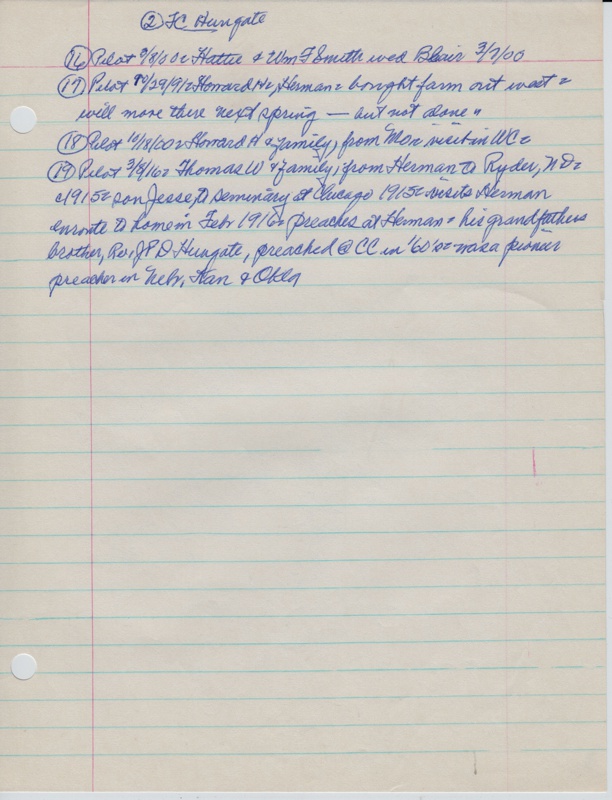 ② FC Hungate
⑯ Pilot 3/8/00 = Hattie & Wm F Smith wed Blair 3/7/00
⑰ Pilot /29/91 = Howard H, Herman = bought farm out west =
will move there next spring — but not done "
⑱ Pilot 10/18/00 = Howard H & family, from Mo = visit in WC =
⑲ Pilot 3/8/16 = Thomas W & family, from Herman to Ryder, ND =
c1915 = son Jesse, to seminary at Chicago 1915 = visits Herman
enroute to home in Febr 1916 = preaches at Herman = his grandfathers
brother, Rev J P D Hungate, preached @ CC in '60's = was a pioneer
preacher in Nebr, Kan & Okla